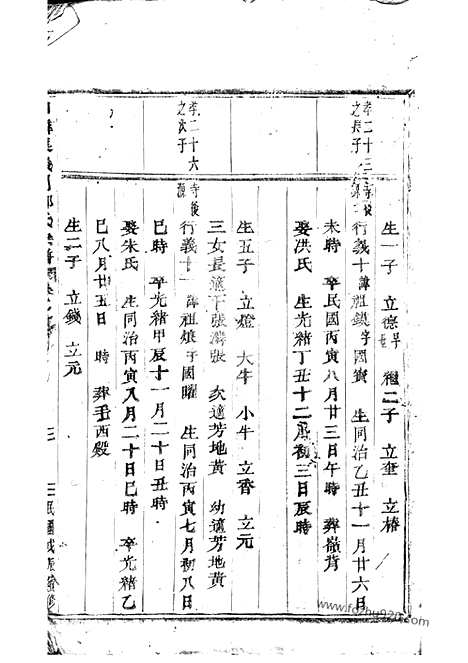 生一子 立德早 繼二子 立奎 立椿
孝二十三
之長子
行義十 諱祖鎮字國寶 生同治乙丑十一月廿六日
未時 卒民國丙寅八月廿三日午時 葬嶺背
娶洪氏 生光緒丁丑十二月初三日辰時
生五子 立燈 大牛 小牛 立香 立元
三女長適下張溝張 次適芳地黃 幼適芳地黃
孝二十六
之次子
行義十一 諱祖 字國曜 生同治丙寅七月初八日
巳時 卒光緒甲辰十一月二十日丑時
娶朱氏 生同治丙寅八月二十日巳時 卒光緒乙
巳八月廿五日 時 葬王西殿
生二子 立錢 立元
三
民國戊辰
www.fozhu920.com